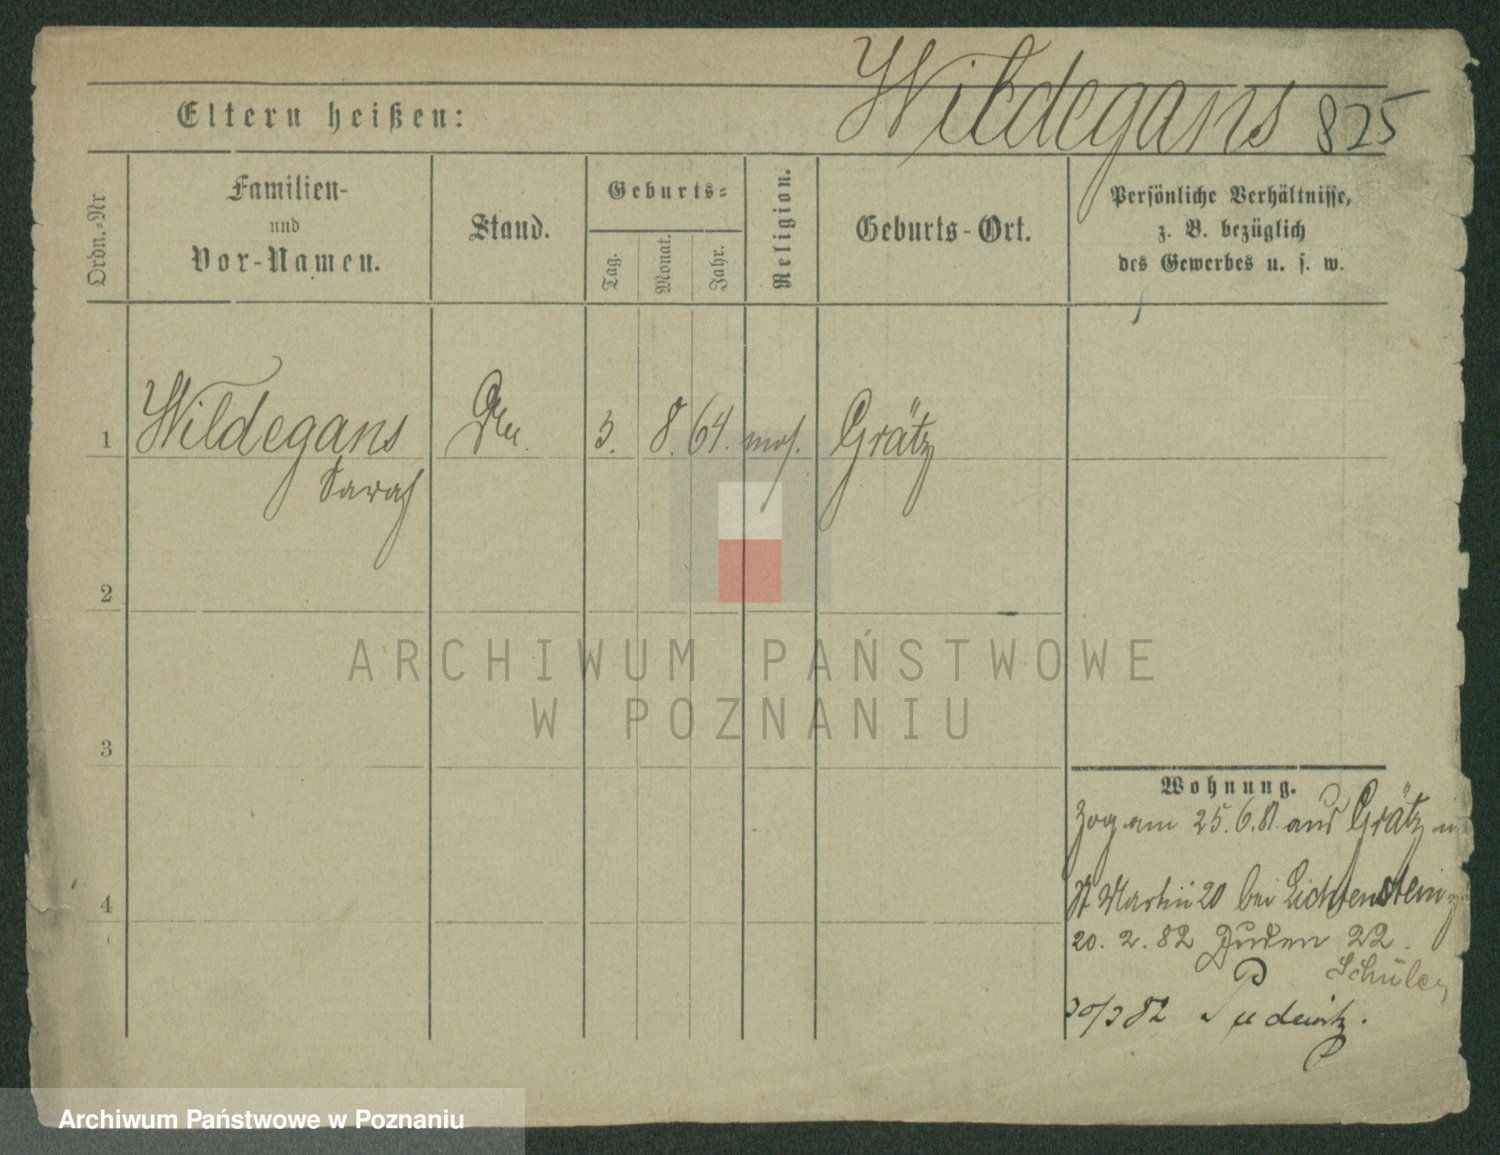 Wildegans 825
Eltern heißen:
Ordn.-Nr
Familien-
und
Vor-Namen.
Stand.
Geburts-
Tag.
Monat.
Jahr.
Religion.
Geburts-Ort.
Persönliche Verhältnisse,
z. B. bezüglich
des Gewerbes u. s. w.
1 Wildegans 3. 8. 64. mos. Grätz
Sarah
2
3
4
Wohnung.
Zog am 25.6.81. aus Grätz
St Martin 20 bei Lichtenstein
20. 2. 82 Juden 22.
Schüler
30/3 82 Pudewitz.
ARCHIWUM PAŃSTWOWE
W POZNANIU
Archiwum Państwowe w Poznaniu